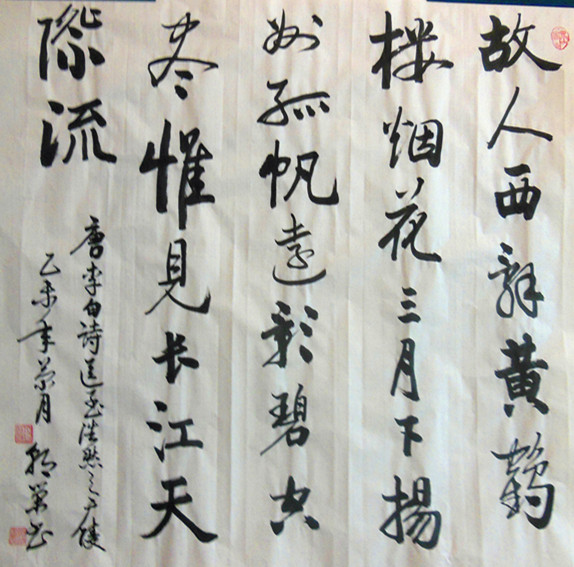 故人西辞黄鹤
楼烟花三月下揚
州孤帆遠影碧空
尽惟見长江天
際流
唐李白詩送孟浩然之广陵
乙未年菊月